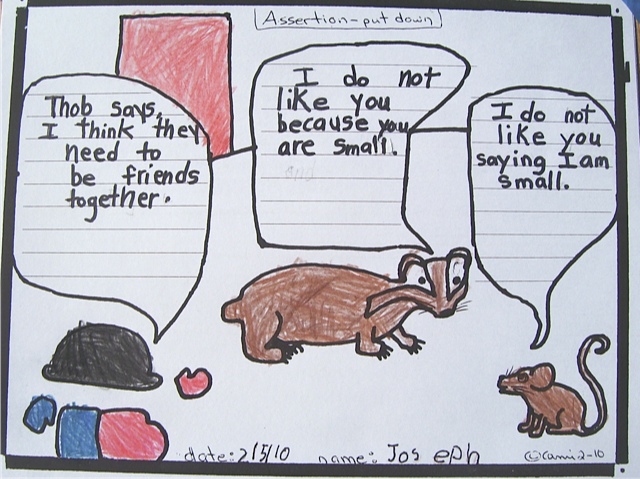 Assertion-put down
Thob says,
I think they
need to
be friends
together.
I do not
like you
because you
are small.
I do not
like you
saying I am
small.
date: 2/5/10 name: Joseph
©Cami 2-10